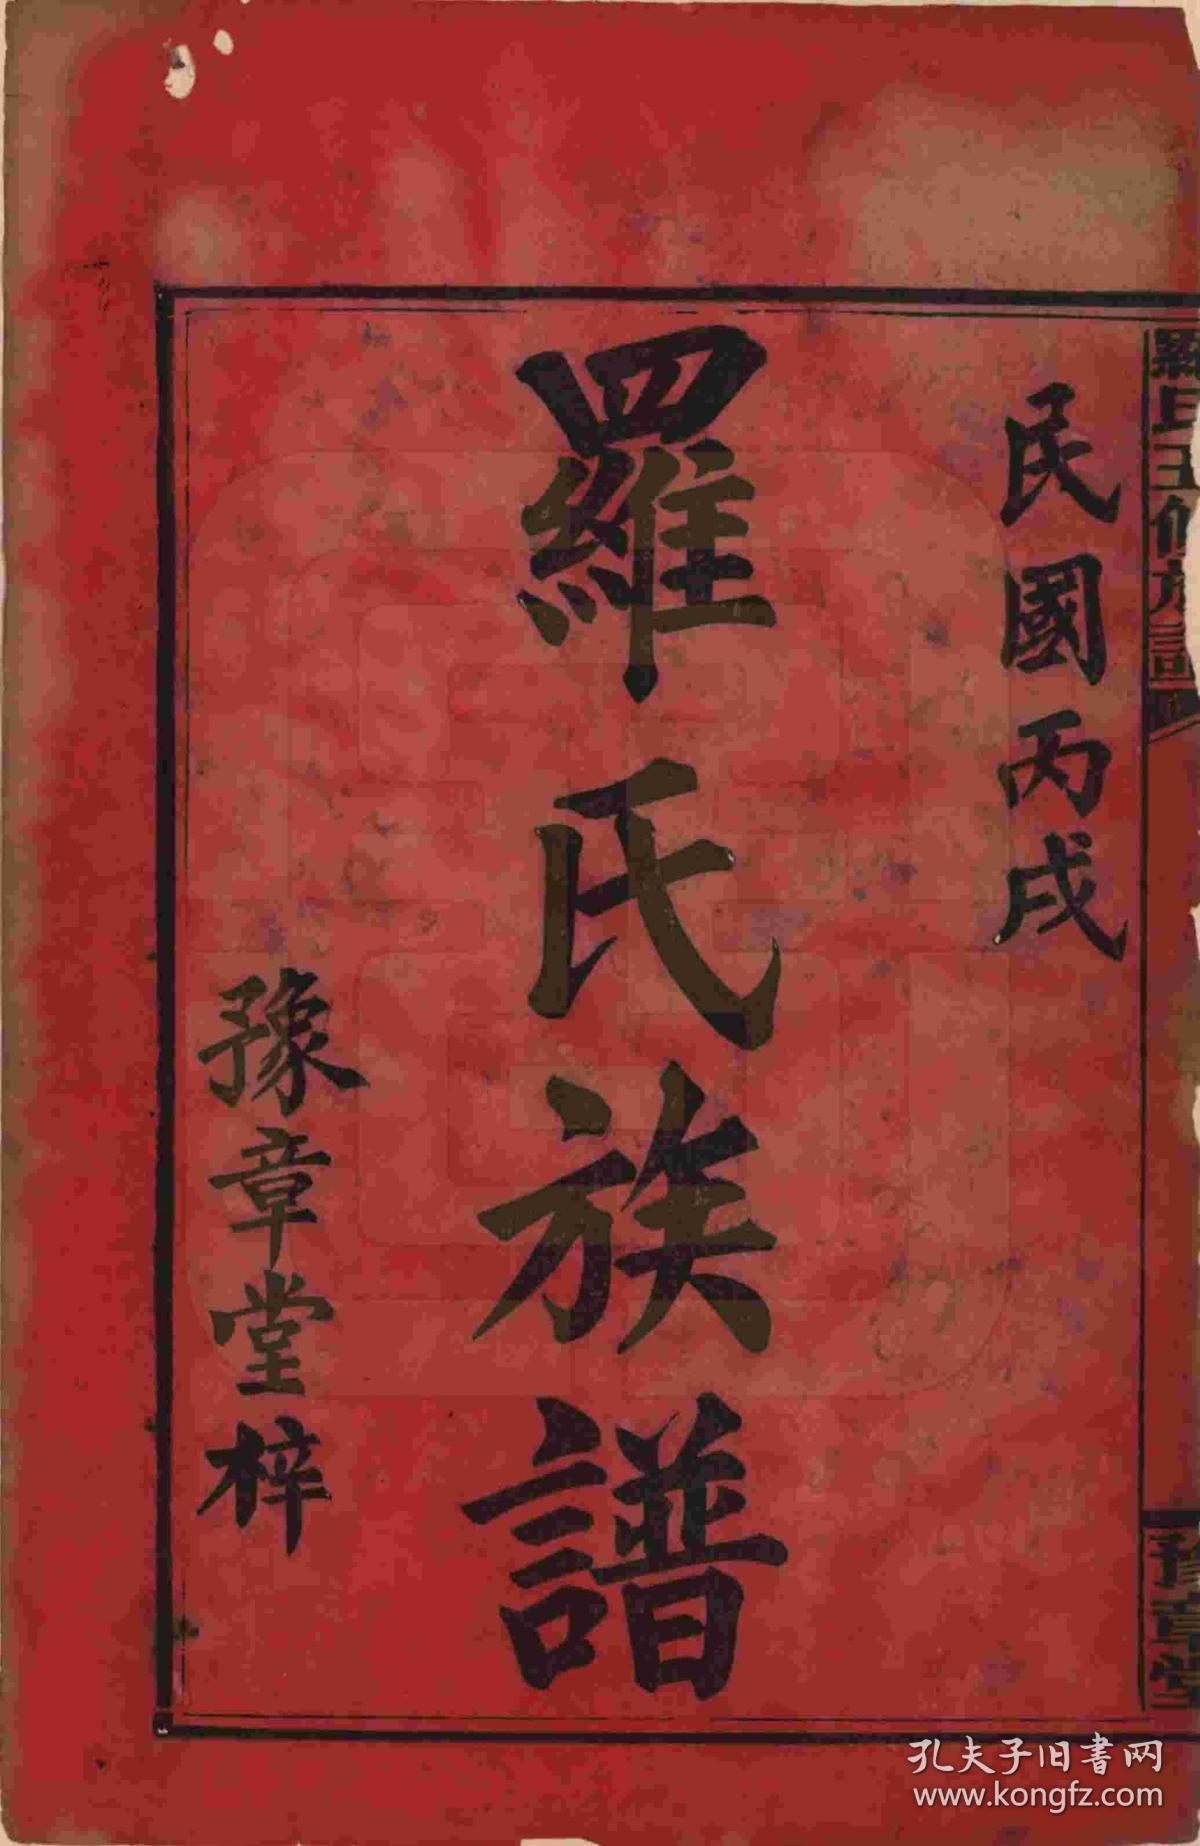 民國丙戌
羅氏族譜
豫章堂梓
羅氏五修族譜
豫章堂
孔夫子旧書网
www.kongfz.com